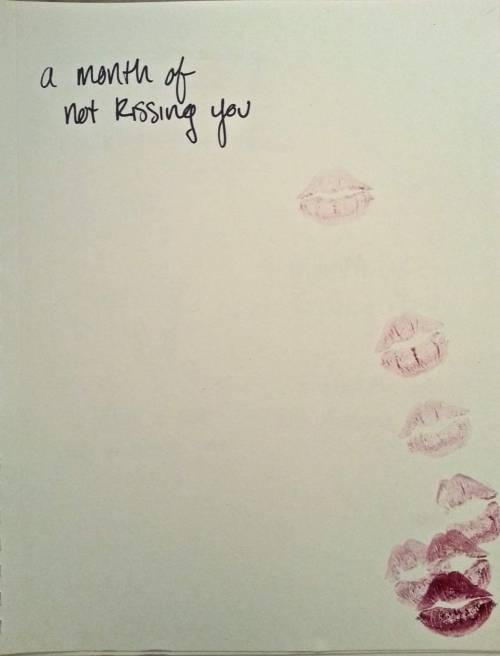 a month of
not kissing you